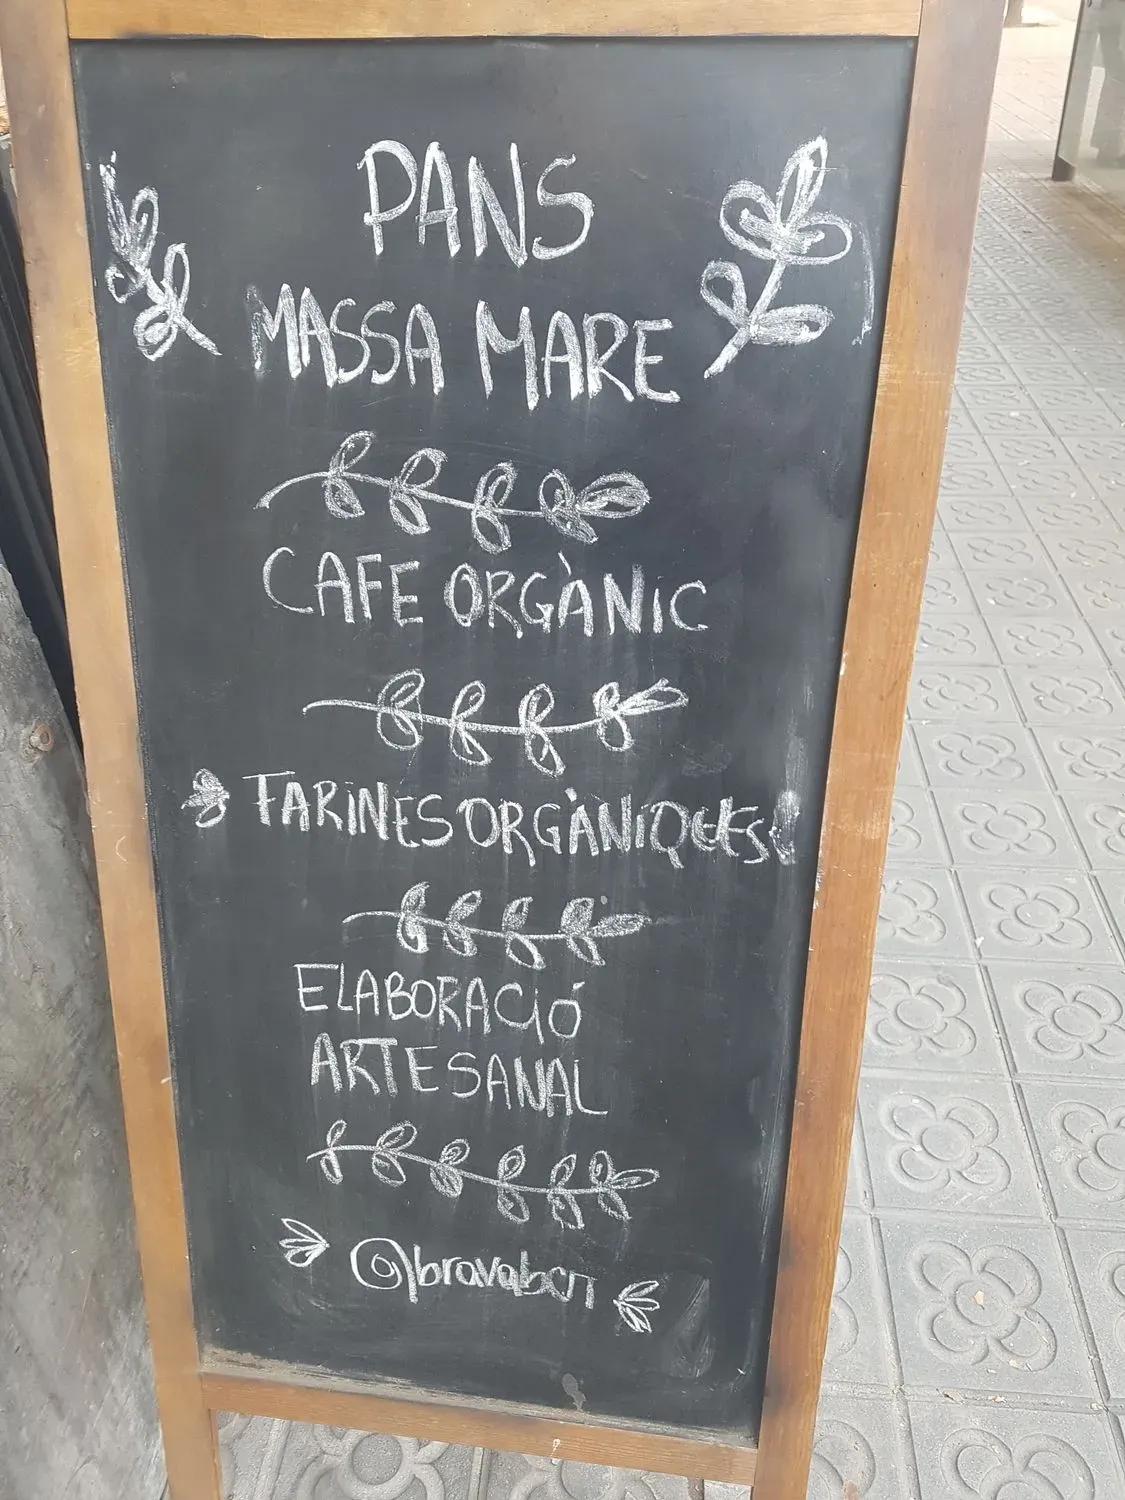 PANS
MASSA MARE
CAFE ORGÀNIC
FARINES ORGÀNIQUES
ELABORACIÓ
ARTESANAL
@bravabcn